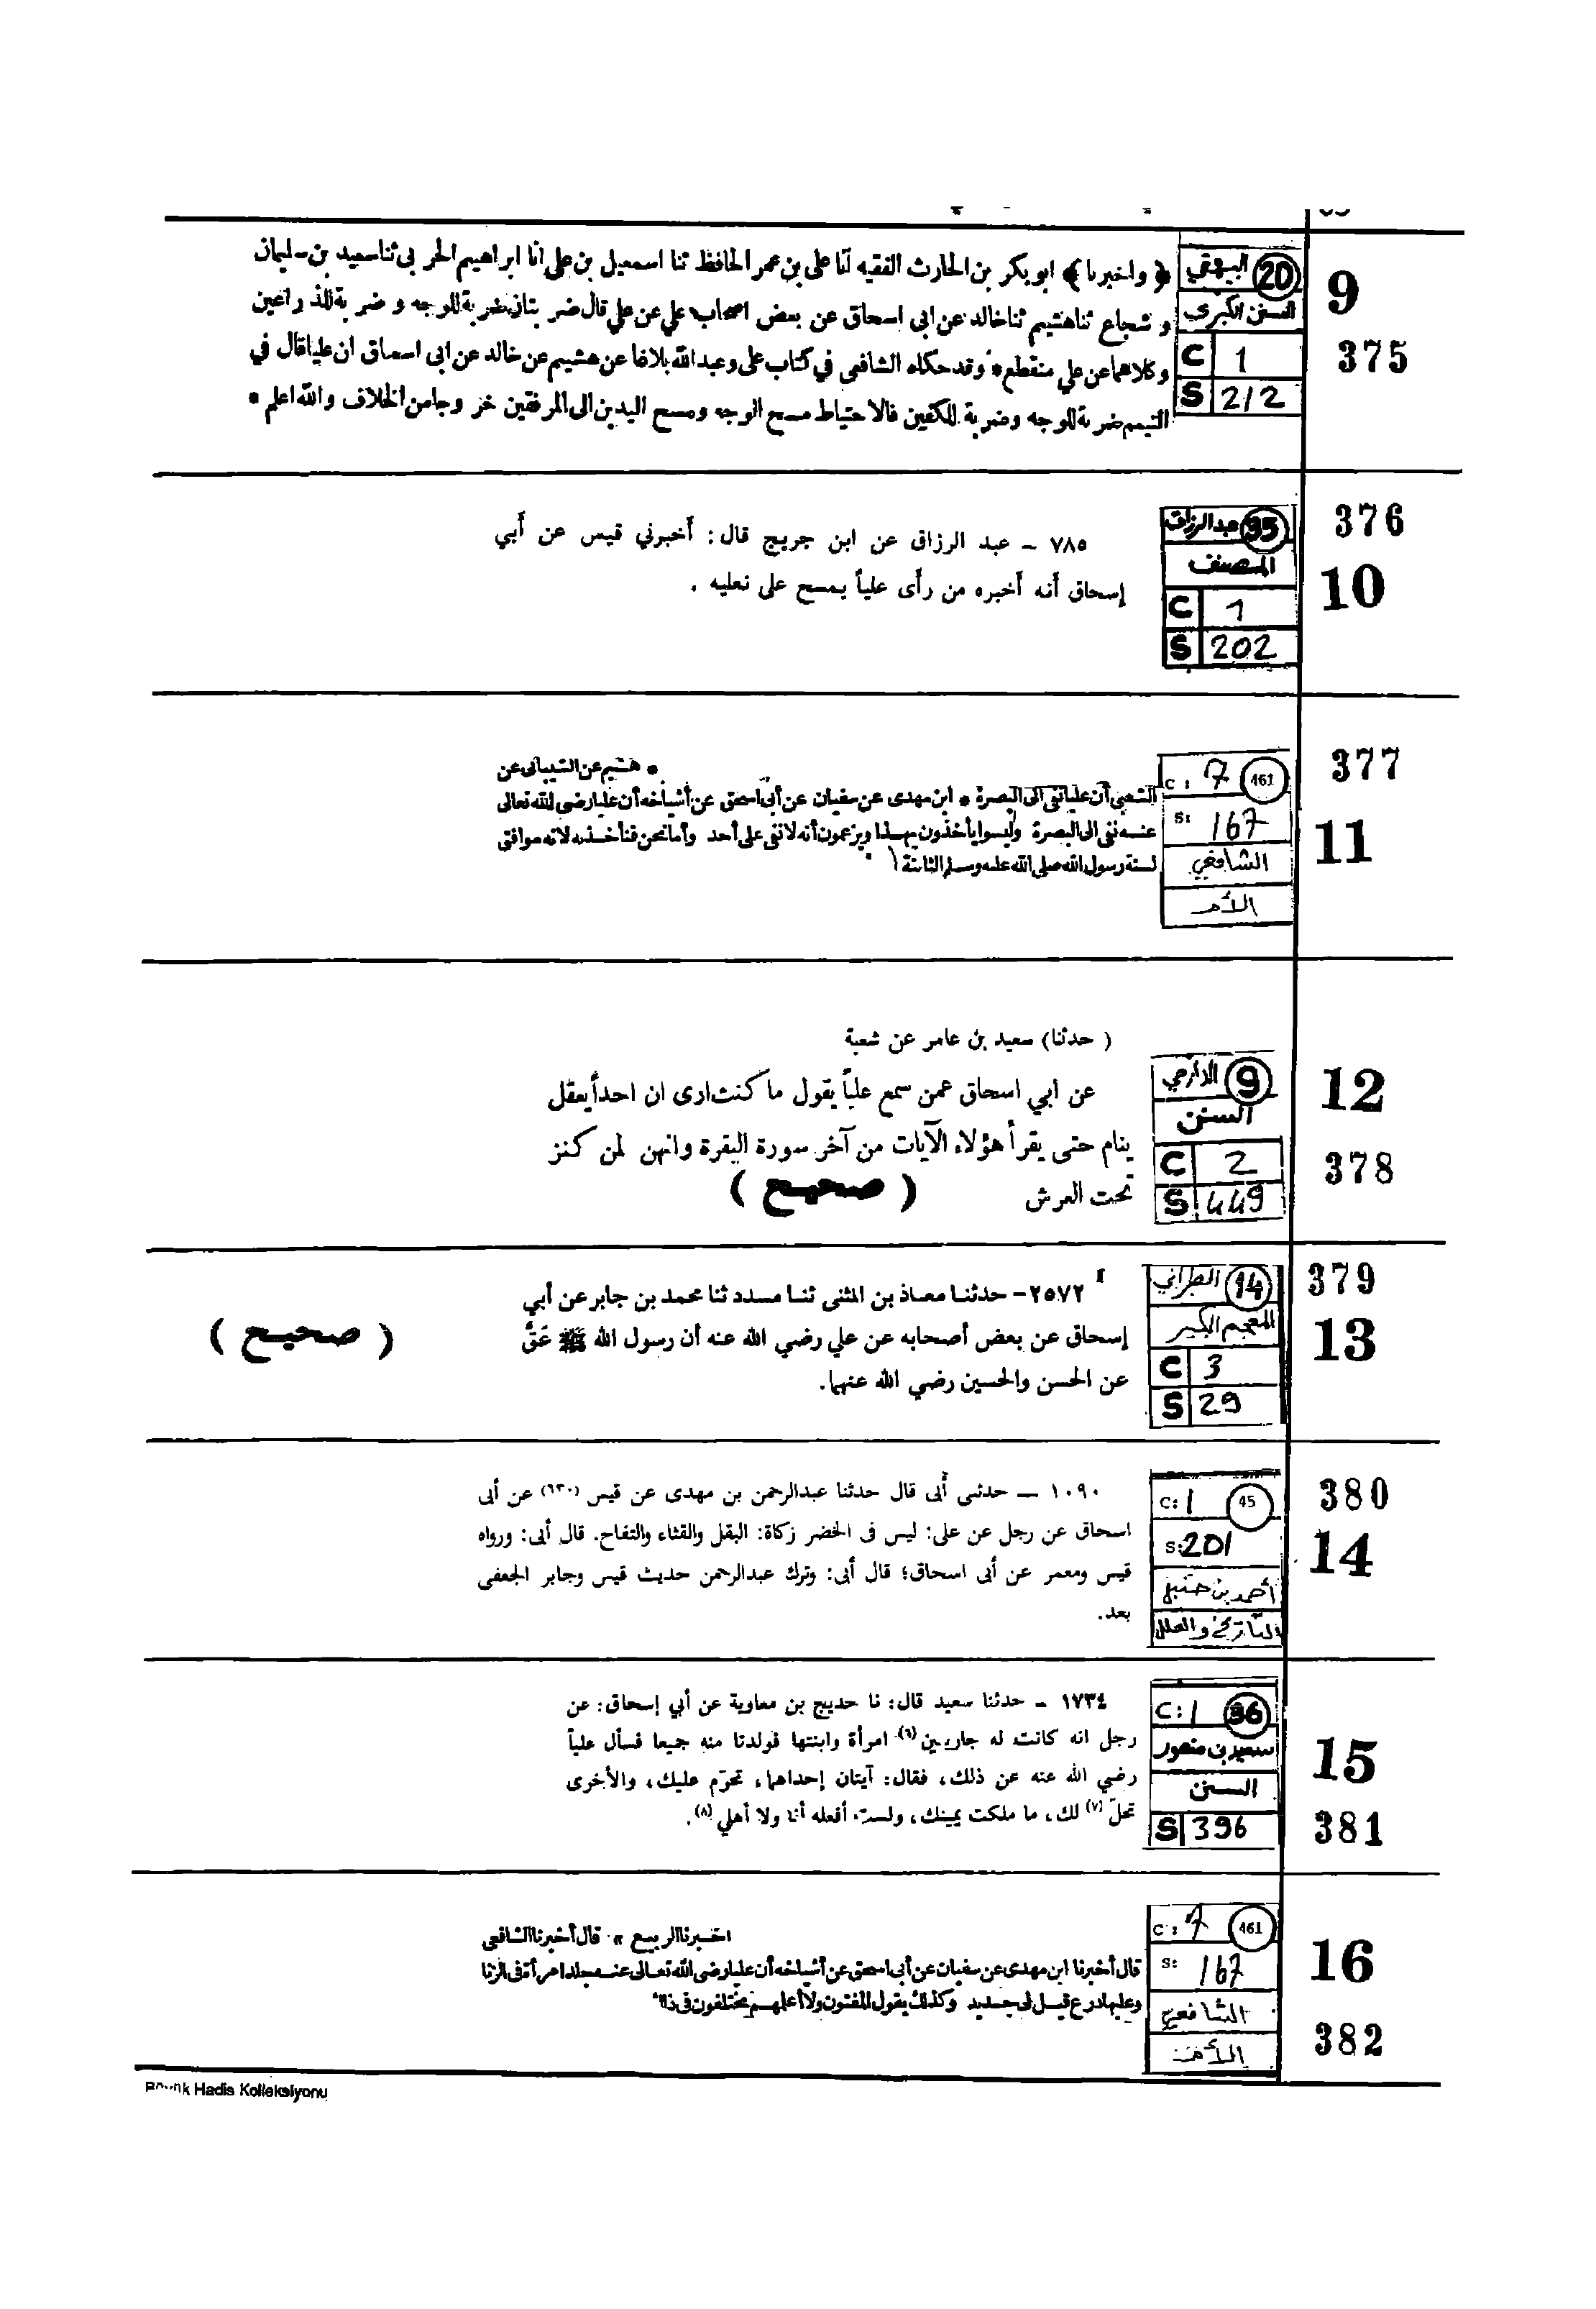 9
375
البيهقي 20
السنن الكبرى
C 1
S 212
﴿ واخبرنا ﴾ ابو بكر بن الحارث الفقيه انا على بن عمر الحافظ ثنا اسمعيل بن على انا ابراهيم الحربى ثنا سعيد بن سليمان
و شجاع ثنا هشيم ثنا خالد عن ابى اسحاق عن بعض اصحاب علي عن علي قال ضربتان ضربة للوجه و ضربة للذراعين
وكلاهما عن علي منقطع * وقد حكاه الشافعى في كتاب على وعبد الله بلاغا عن هشيم عن خالد عن ابى اسحاق ان عليا قال في
التيمم ضربة للوجه وضربة للكفين فالاحتياط مسح الوجه ومسح اليدين الى المرفقين خروجا من الخلاف والله اعلم *
376
10
عبد الرزاق 35
المصنف
C 1
S 202
٧٨٥ - عبد الرزاق عن ابن جريج قال : أخبرني قيس عن أبي
إسحاق أنه أخبره من رأى علياً يمسح على نعليه .
377
11
C: 7 461
S: 167
الشافعي
الأم
* هشيم عن الشيباني عن
الشعبي أن عليا نفى الى البصرة * ابن مهدى عن سفيان عن أبى اسحق عن أشياخه أن عليا رضى الله تعالى
عنه نفى الى البصرة وليسوا يأخذون بهذا ويزعمون أنه لا نفى على أحد وأما نحن فنأخذ به لانه موافق
لسنة رسول الله صلى الله عليه وسلم الثابتة
12
378
الدارمي 9
السنن
C 2
S 449
( حدثنا ) سعيد بن عامر عن شعبة
عن ابي اسحاق عمن سمع علياً يقول ما كنت ارى ان احداً يعقل
ينام حتى يقرأ هؤلاء الآيات من آخر سورة البقرة وانهن لمن كنز
تحت العرش ( صحيح )
379
13
الطبراني 14
المعجم الكبير
C 3
S 29
٢٥٧٢ - حدثنا معاذ بن المثنى ثنا مسدد ثنا محمد بن جابر عن أبي
إسحاق عن بعض أصحابه عن علي رضي الله عنه أن رسول الله ﷺ عَقَّ
عن الحسن والحسين رضي الله عنهما.
( صحيح )
380
14
C: 1 45
S: 201
أحمد بن حنبل
التاريخ والعلل
١٠٩٠ — حدثنى أبى قال حدثنا عبدالرحمن بن مهدى عن قيس (٦٣٠) عن أبى
اسحاق عن رجل عن على: ليس فى الخضر زكاة: البقل والقثاء والتفاح. قال أبى: ورواه
قيس ومعمر عن أبى اسحاق؛ قال أبى: وترك عبدالرحمن حديث قيس وجابر الجعفى
بعد.
15
381
C: 1 36
سعيد بن منصور
السنن
S 396
١٧٣٤ - حدثنا سعيد قال: نا حديج بن معاوية عن أبي إسحاق: عن
رجل انه كانت له جاريتين (٦) امرأة وابنتها فولدتا منه جميعا فسأل علياً
رضي الله عنه عن ذلك، فقال: آيتان إحداهما، تحرّم عليك، والأخرى
تحلّ (٧) لك، ما ملكت يمينك، ولست أفعله أنا ولا أهلي (٨).
16
382
C: 7 461
S: 167
الشافعي
الأم
اخبرنا الربيع * قال أخبرنا الشافعى
قال أخبرنا ابن مهدى عن سفيان عن أبى اسحق عن أشياخه أن عليا رضى الله تعالى عنه جلد امرأة فى الزنا
وعليها درع قيل لى جديد وكذلك يقول المفتون ولا أعلمهم يختلفون فى ذلك
Hadis Kolleksiyonu